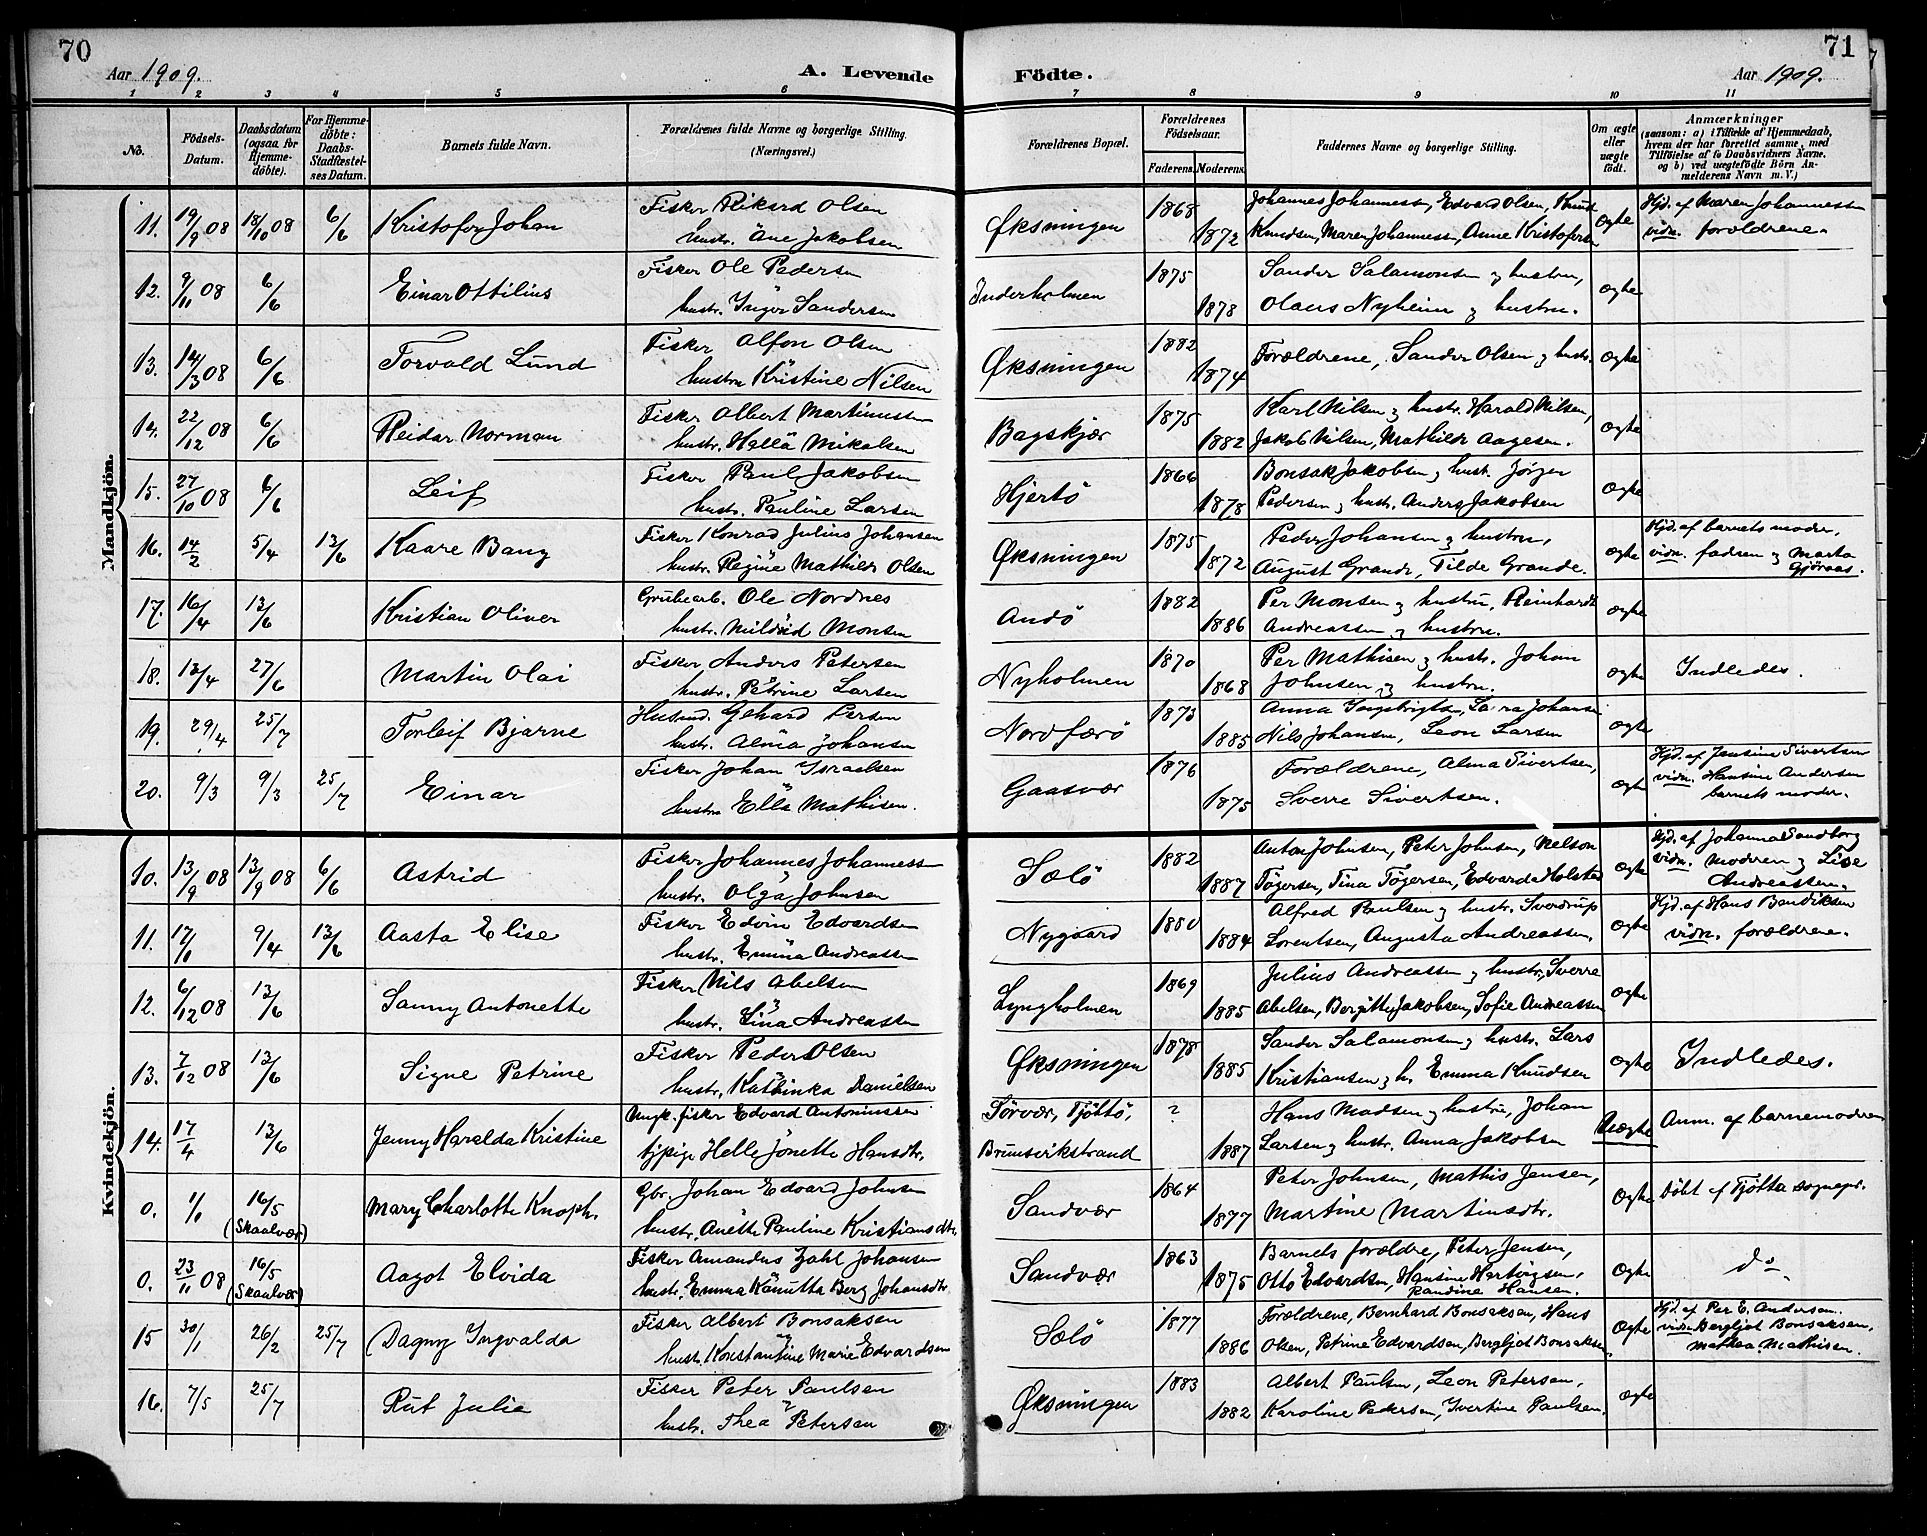 70
71
Aar 1909.
A. Levende Fødte.
Aar 1909.
1 2 3 4 5 6 7 8 9 10 11
No.
Fødsels-Datum.
Daabsdatum (ogsaa for Hjemme-døbte).
For Hjemme-døbte: Daabs-Stadfæstel-ses Datum.
Barnets fulde Navn.
Forældrenes fulde Navne og borgerlige Stilling. (Næringsvei.)
Forældrenes Bopæl.
Forældrenes Fødselsaar.
Faderens. Moderens.
Faddernes Navne og borgerlige Stilling.
Om ægte eller uægte født.
Anmærkninger
(saasom: a) i Tilfælde af Hjemmedaab, hvem der har forrettet samme, med Tilføielse af to Daabsvidners Navne, og b) ved uægtefødte Børn An-melderens Navn m. V.)
Mandkjön.
11. 19/9 08 18/10 08 6/6 Kristofer Johan Fisker Rikard Olsen Øksningen 1868 Johannes Johannessn, Edvard Olsen, Knut ægte Hjd. af Maren Johannessn
hustr. Ane Jakobsen 1872 Knudsen, Maren Johannessn, Anne Kristofersen vidn. forældrene.
12. 9/11 08 6/6 Einar Ottilius Fisker Ole Pedersen Inderholmen 1875 Sander Salamonsen og hustru, ægte
hustr. Inger Sandersen 1878 Olaus Nyheim og hustru.
13. 14/3 08 6/6 Torvald Lund Fisker Alfon Olsen Øksningen 1882 Forældrene, Sander Olsen og hustr. ægte
hustru Kristine Nilsen 1874
14. 22/12 08 6/6 Reidar Norman Fisker Albert Martinussen Bagskjær 1875 Karl Nilsen og hustr. Harald Nilsen, ægte
hustr. Hella Mikalsen 1882 Jakob Nilsen, Mathilde Aagesen.
15. 27/10 08 6/6 Leif Fisker Paul Jakobsen Hjertö 1866 Bonsak Jakobsen og hust. Jørgen ægte
hustr. Pauline Larsen 1878 Pedersen og hustr. Anders Jakobsen
16. 14/2 5/4 13/6 Kaare Bang Fisker Konrad Julius Johansen Øksningen 1875 Peder Johansen og hustru, ægte Hjd. af barnets moder,
hustr. Regine Mathilde Olsen 1872 August Grande, Tilde Grande. vidn. fadren og Marta
Gjøraas.
17. 16/4 13/6 Kristian Oliver Grubearb. Ole Nordnes Andö 1882 Per Monsen og hustru, Reinhardt ægte
hustr. Mildrid Monsen 1886 Andreassen og hustru.
18. 13/4 27/6 Martin Olai Fisker Anders Petersen Nyholmen 1870 Per Mathisen og hustr. Johan ægte Indledes.
hustr. Petrine Larsen 1868 Johnsen og hustru.
19. 29/4 25/7 Torleif Bjarne Husmd. Gehard Persen Nordfærö 1873 Anna Ingebrigts, Lara Johansen ægte
hustr. Alma Johansen 1885 Nils Johansen, Leon Larsen
20. 9/3 9/3 25/7 Einar Fisker Johan Israelsen Gaasvær 1876 Forældrene, Alma Sivertsen, ægte Hjd. af Jensine Sivertsen
hustru Ella Mathisen. 1875 Sverre Sivertsen. vidn. Hansine Andersen
barnets moder.
Kvindekjön.
10. 13/9 08 13/9 08 6/6 Astrid Fisker Johannes Johannessn Sælö 1882 Anton Johnsen, Peter Johnsen, Nelson ægte Hjd. af Johanna Sandborg
hustr. Olga Johnsen 1887 Tøgersen, Tina Tøgersen, Edvarda Holstad vidn. modren og Lise
Andreassen.
11. 17/1 9/4 13/6 Aasta Elise Fisker Edvin Edvardsen Nygaard 1880 Alfred Paulsen og hustr. Sverdrup ægte Hjd. af Hans Bendiksen
hustr. Emma Andreassen 1884 Lorentsen, Augusta Andreassen. vidn. forældrene.
12. 6/12 08 13/6 Sanny Antonette Fisker Nils Abelsen Lyngholmen 1869 Julius Andreassen og hustr, Sverre ægte
hustr. Lina Andreassen 1885 Abelsen, Bergitte Jakobsen, Sofie Andreassen
13. 7/12 08 13/6 Signe Petrine Fisker Peder Olsen Øksningen 1878 Sander Salamonsen og hustr. Lars ægte Indledes.
hustr. Kathinka Danielsen 1885 Kristiansen og h. Emma Knudsen
14. 17/4 13/6 Jenny Haralda Kristine Ungk. fisker Edvard Antoniussen Sørvær, Tjöttö, ? Hans Madsen og hustru, Johan Uægte Anm. af barnemodren
tjpige Helle Jonette Hansdtr. Brunsvikstrand 1887 Larsen og hustr. Anna Jakobsen
0. 1/1 16/5 (Skaalvær) Mary Charlotte Knoph. Gbr. Johan Edvard Johnsen Sandvær 1864 Peter Johnsen, Mathis Jensen, Ægte Döbt af Tjøtta sognepr.
hustr. Anette Pauline Kristiansdtr. 1877 Martine Martinsdtr.
0. 23/11 08 16/5 (Skaalvær) Aagot Elvida Fisker Amandus Zahl Johansen Sandvær 1863 Barnets forældre, Peter Jensen, Ægte do
hustr. Emma Kanutta Berg Johansdtr. 1875 Otto Edvardsen, Hansine Hartvigsen,
Randine Hansen.
15 30/1 26/2 25/7 Dagny Ingvalda Fisker Albert Bonsaksen Sælö 1877 Forældrene, Bernhard Bonsaksen, Hans Ægte Hjd. af Per E. Andersen.
hustr. Konstantine Marie Edvardsen 1886 Olsen, Petrine Edvardsen, Bergljot Bonsaksen, vidn. Bergljot Bonsaksen,
Mathea Mathisen.
16. 7/5 25/7 Rut Julie Fisker Peter Paulsen Øksningen 1883 Albert Paulsen, Leon Petersen, Ægte
hustr. Thea Petersen 1882 Karoline Pedersen, Ivertine Paulsen.